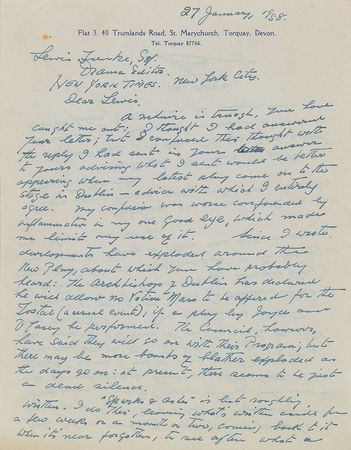 27 January, 1958.
Flat 3, 40 Trumlands Road, St. Marychurch, Torquay, Devon.
Tel. Torquay 87766.
Lewis Funke, Esq.
Drama Editor.
NEW YORK TIMES. New York City.
Dear Lewis,
A notice is enough. You have
caught me out. I thought I had answered
your letter; but I confused this thought with
the reply I had sent in your answer
to yours advising what I sent would be better
appearing when my latest play came on to the
stage in Dublin – advice with which I entirely
agree. My confusion was worse confounded by
inflammation in my one good eye, which made
me limit my use of it. Since I wrote,
developments have exploded around the
New Play, about which you have probably
heard: The Archbishop of Dublin has declared
he will allow no Votive Mass to be offered for the
Tostal (annual event), if a play by Joyce and
O'Casey be performed. The Council, however,
have said they will go on with their Program; but
there may be more bombs of blather exploded as
the days go on: at present, there seems to be just
a dead silence.
"Sparks & Ashes" is but roughly
written. I do this, leaving what's written aside for
a few weeks or a month or two, coming back to it
when it's near forgotten, to see after what a